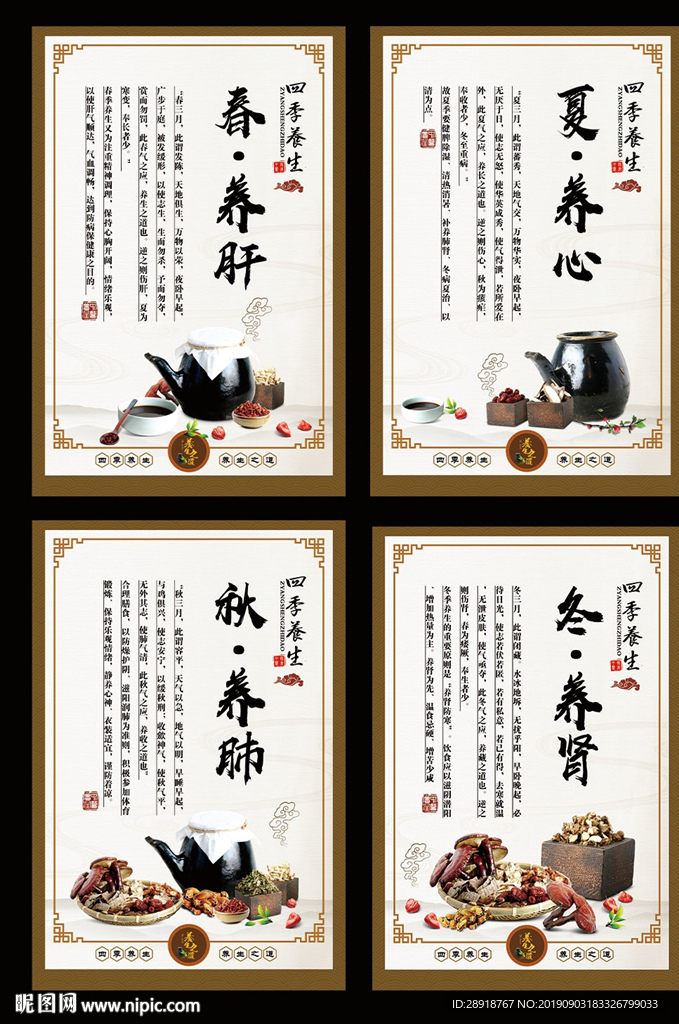 四季養生
ZYANGSHENGZHIDAO
春·养肝
“春三月，此谓发陈，天地俱生，万物以荣，夜卧早起，
广步于庭，被发缓形，以使志生，生而勿杀，予而勿夺，
赏而勿罚，此春气之应，养生之道也。逆之则伤肝，夏为
寒变，奉长者少。”
春季养生又为注重精神调理，保持心胸开阔，情绪乐观，
以使肝气顺达，气血调畅，达到防病保健康之目的。
四季养生
养生之道
养生之道
四季養生
ZYANGSHENGZHIDAO
夏·养心
“夏三月，此谓蕃秀，天地气交，万物华实，夜卧早起，
无厌于日，使志无怒，使华英成秀，使气得泄，若所爱在
外，此夏气之应，养长之道也。逆之则伤心，秋为痎疟，
奉收者少，冬至重病。”
故夏季要健脾除湿、清热消暑、补养肺肾、冬病夏治，以
清为点。
四季养生
养生之道
养生之道
四季養生
ZYANGSHENGZHIDAO
秋·养肺
“秋三月，此谓容平，天气以急，地气以明，早睡早起，
与鸡俱兴，使志安宁，以缓秋刑；收敛神气，使秋气平，
无外其志，使肺气清，此秋气之应，养收之道也”
合理膳食，以防燥护阴、滋阳润肺为准则，积极参加体育
锻炼、保持乐观情绪，静养心神，衣装适宜，谨防着凉。
四季养生
养生之道
养生之道
四季養生
ZYANGSHENGZHIDAO
冬·养肾
冬三月，此谓闭藏。水冰地坼，无扰乎阳，早卧晚起，必
待日光，使志若伏若匿，若有私意，若已有得，去寒就温
，无泄皮肤，使气亟夺，此冬气之应，养藏之道也。逆之
则伤肾，春为痿厥，奉生者少。
冬季养生的重要原则是“养肾防寒”。饮食应以滋阴潜阳
、增加热量为主。养肾为先，温食忌硬、增苦少咸
四季养生
养生之道
养生之道
昵图网 www.nipic.com
ID:28918767 NO:20190903183326799033